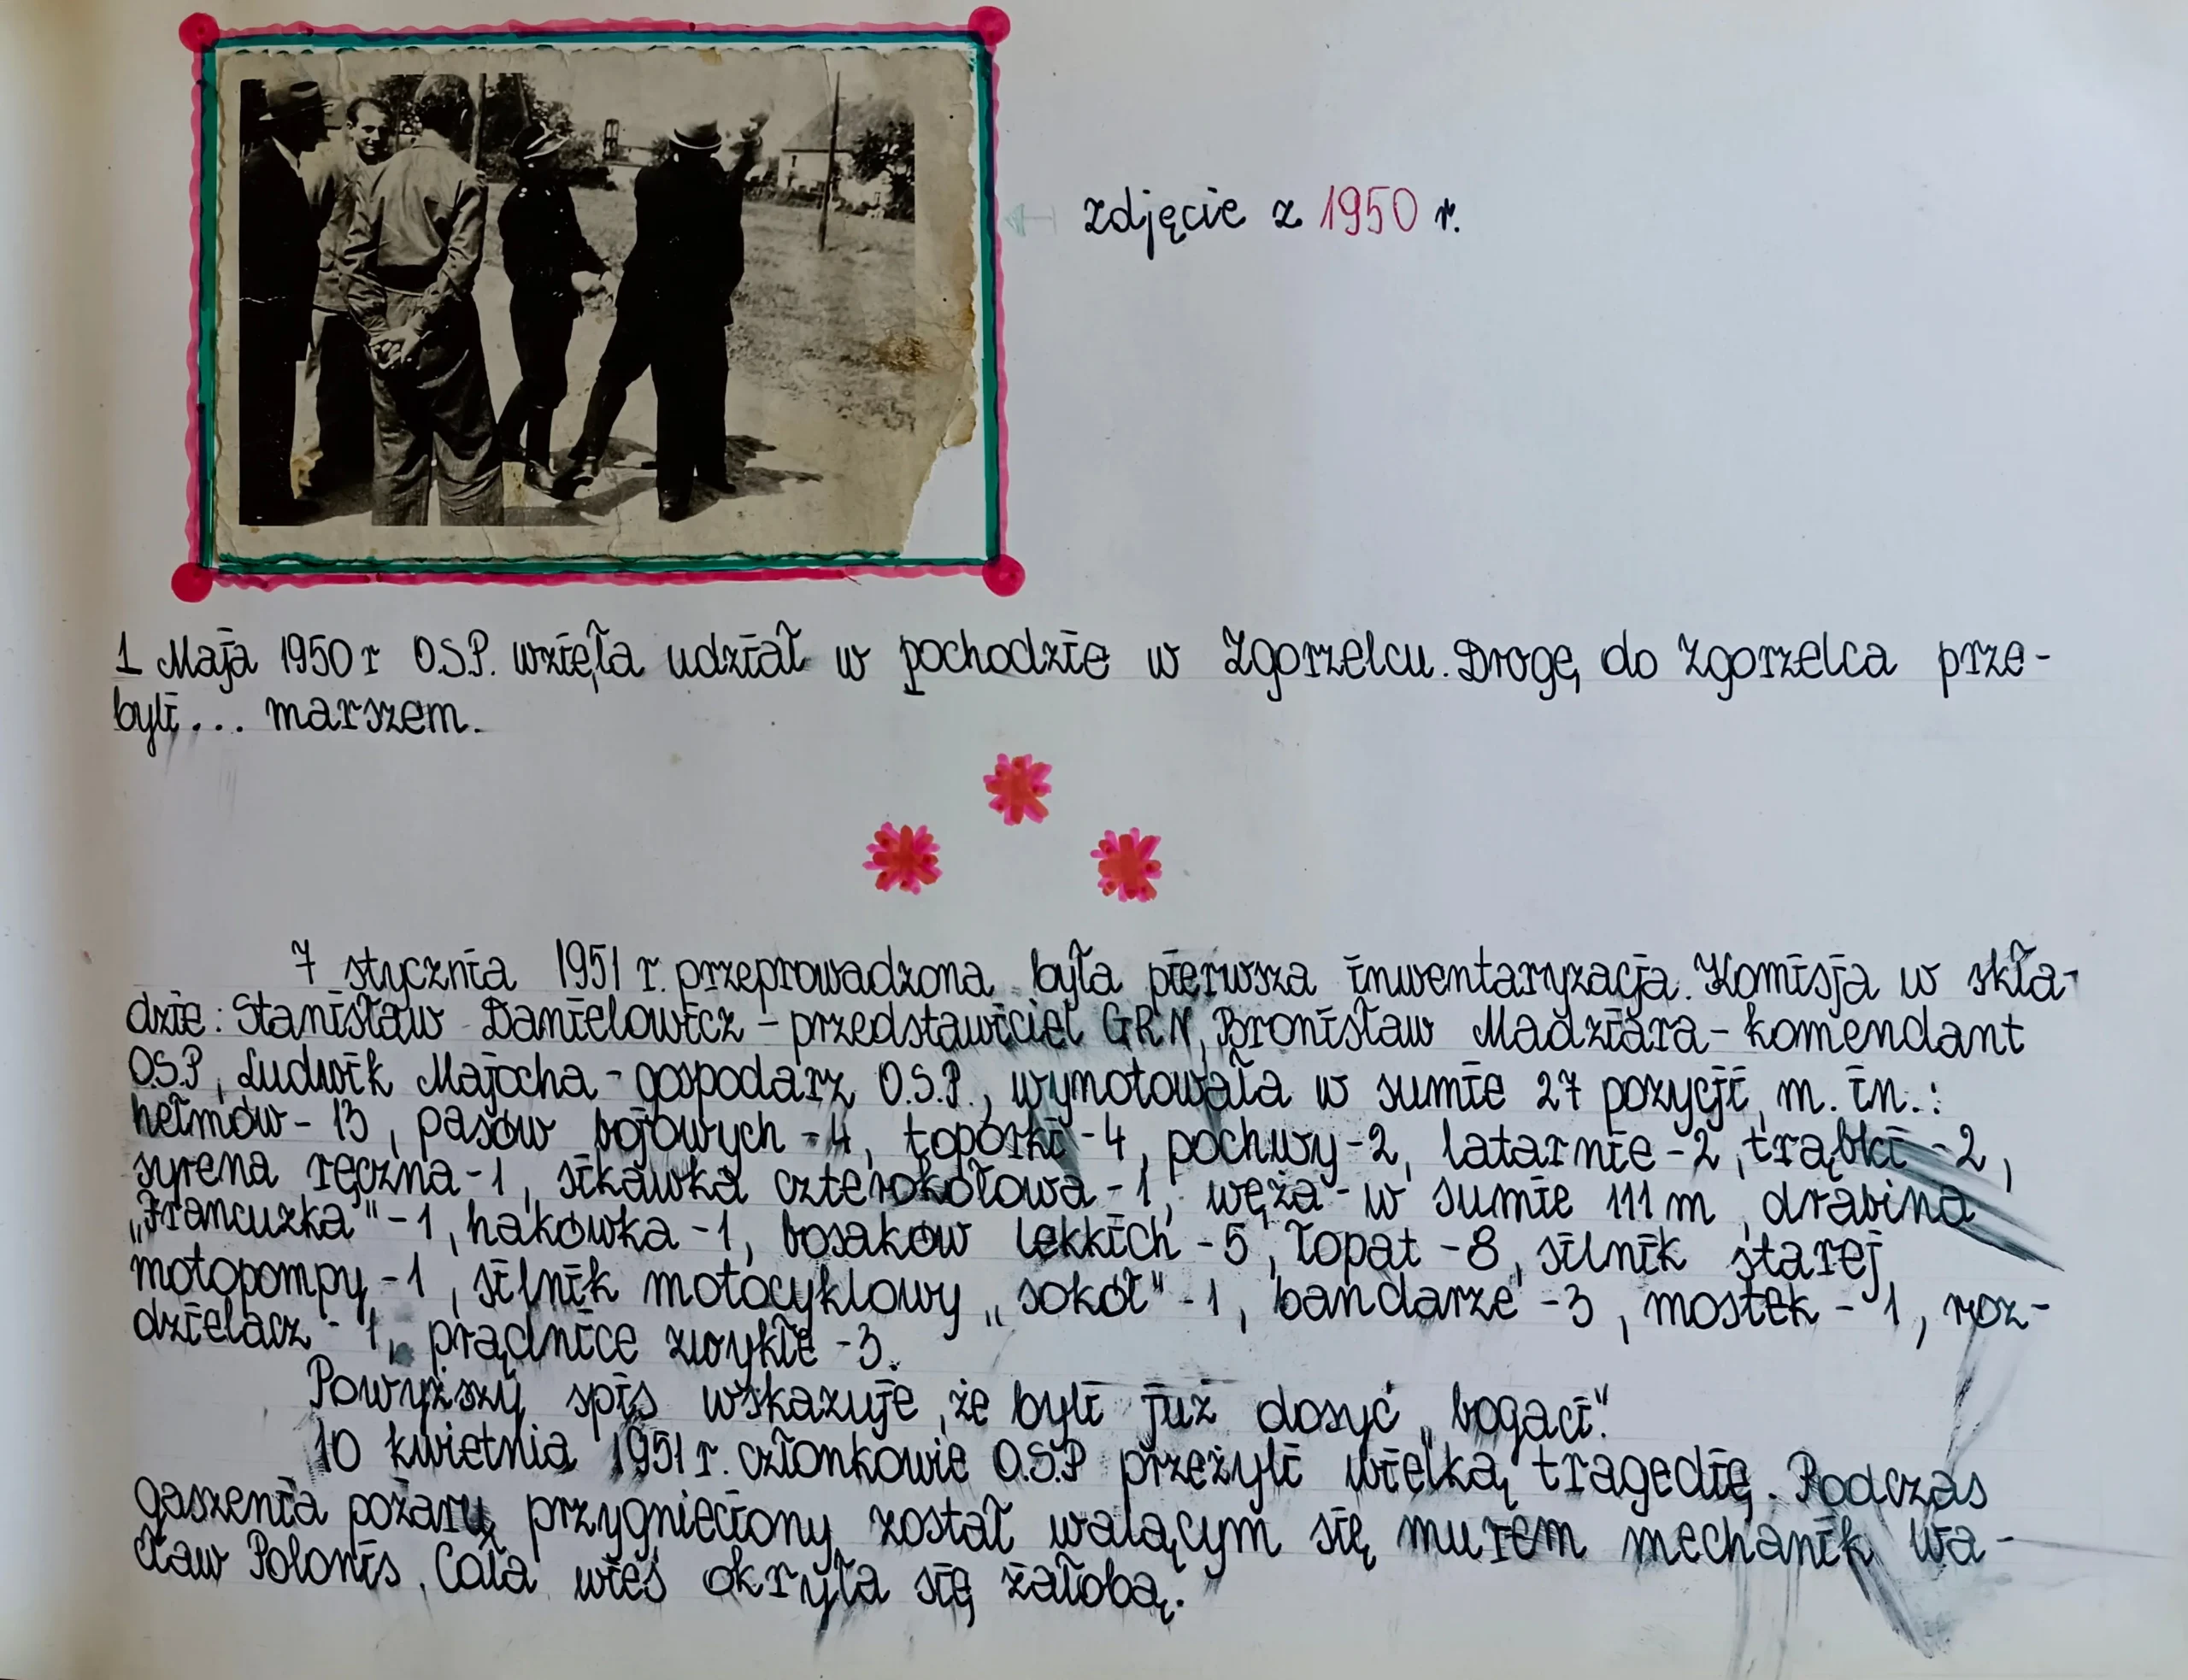 zdjęcie z 1950 r.
1 Maja 1950 r O.S.P. wzięła udział w pochodzie w Zgorzelcu. Drogę do Zgorzelca prze-
byli... marszem.
7 stycznia 1951 r. przeprowadzona była pierwsza inwentaryzacja. Komisja w skła-
dzie: Stanisław Danielowicz - przedstawiciel GRN, Bronisław Madziara - komendant
O.S.P, Ludwik Majocha - gospodarz O.S.P., wynotowała w sumie 27 pozycji, m. in.:
hełmów - 13, pasów bojowych - 4, toporki - 4, pochwy - 2, latarnie - 2, trąbki - 2,
syrena ręczna - 1, sikawka czterokołowa - 1, węża - w sumie 111 m, drabina
„Francuzka" - 1, hakówka - 1, bosaków lekkich - 5, łopat - 8, silnik starej
motopompy - 1, silnik motocyklowy „sokół" - 1, bandarze - 3, mostek - 1, roz-
dzielacz - 1, prądnice zwykłe - 3.
Powyższy spis wskazuje, że byli już dosyć „bogaci".
10 kwietnia 1951 r. członkowie O.S.P przeżyli wielką tragedię. Podczas
gaszenia pożaru przygnieciony został walącym się murem mechanik Wa-
cław Polonis. Cała wieś okryła się żałobą.